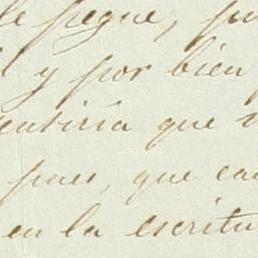 le pegue, pu
y por bien
entiria que
pues, que ca
en la escritu